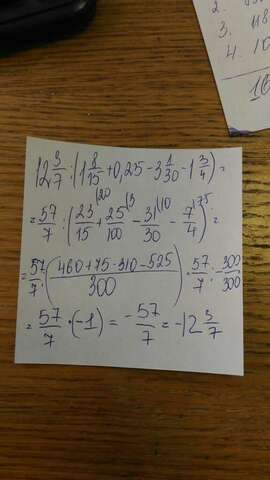 2.
3. 118
4. 10
12 3/7 : (1 8/15 + 0,25 - 3 1/30 - 1 3/4) =
= 57/7 : (23/15 \20 + 25/100 \3 - 31/30 \10 - 7/4 \75) =
= 57/7 : (460 + 75 - 310 - 525 / 300) = 57/7 : - 300/300
= 57/7 · (-1) = - 57/7 = -12 3/7